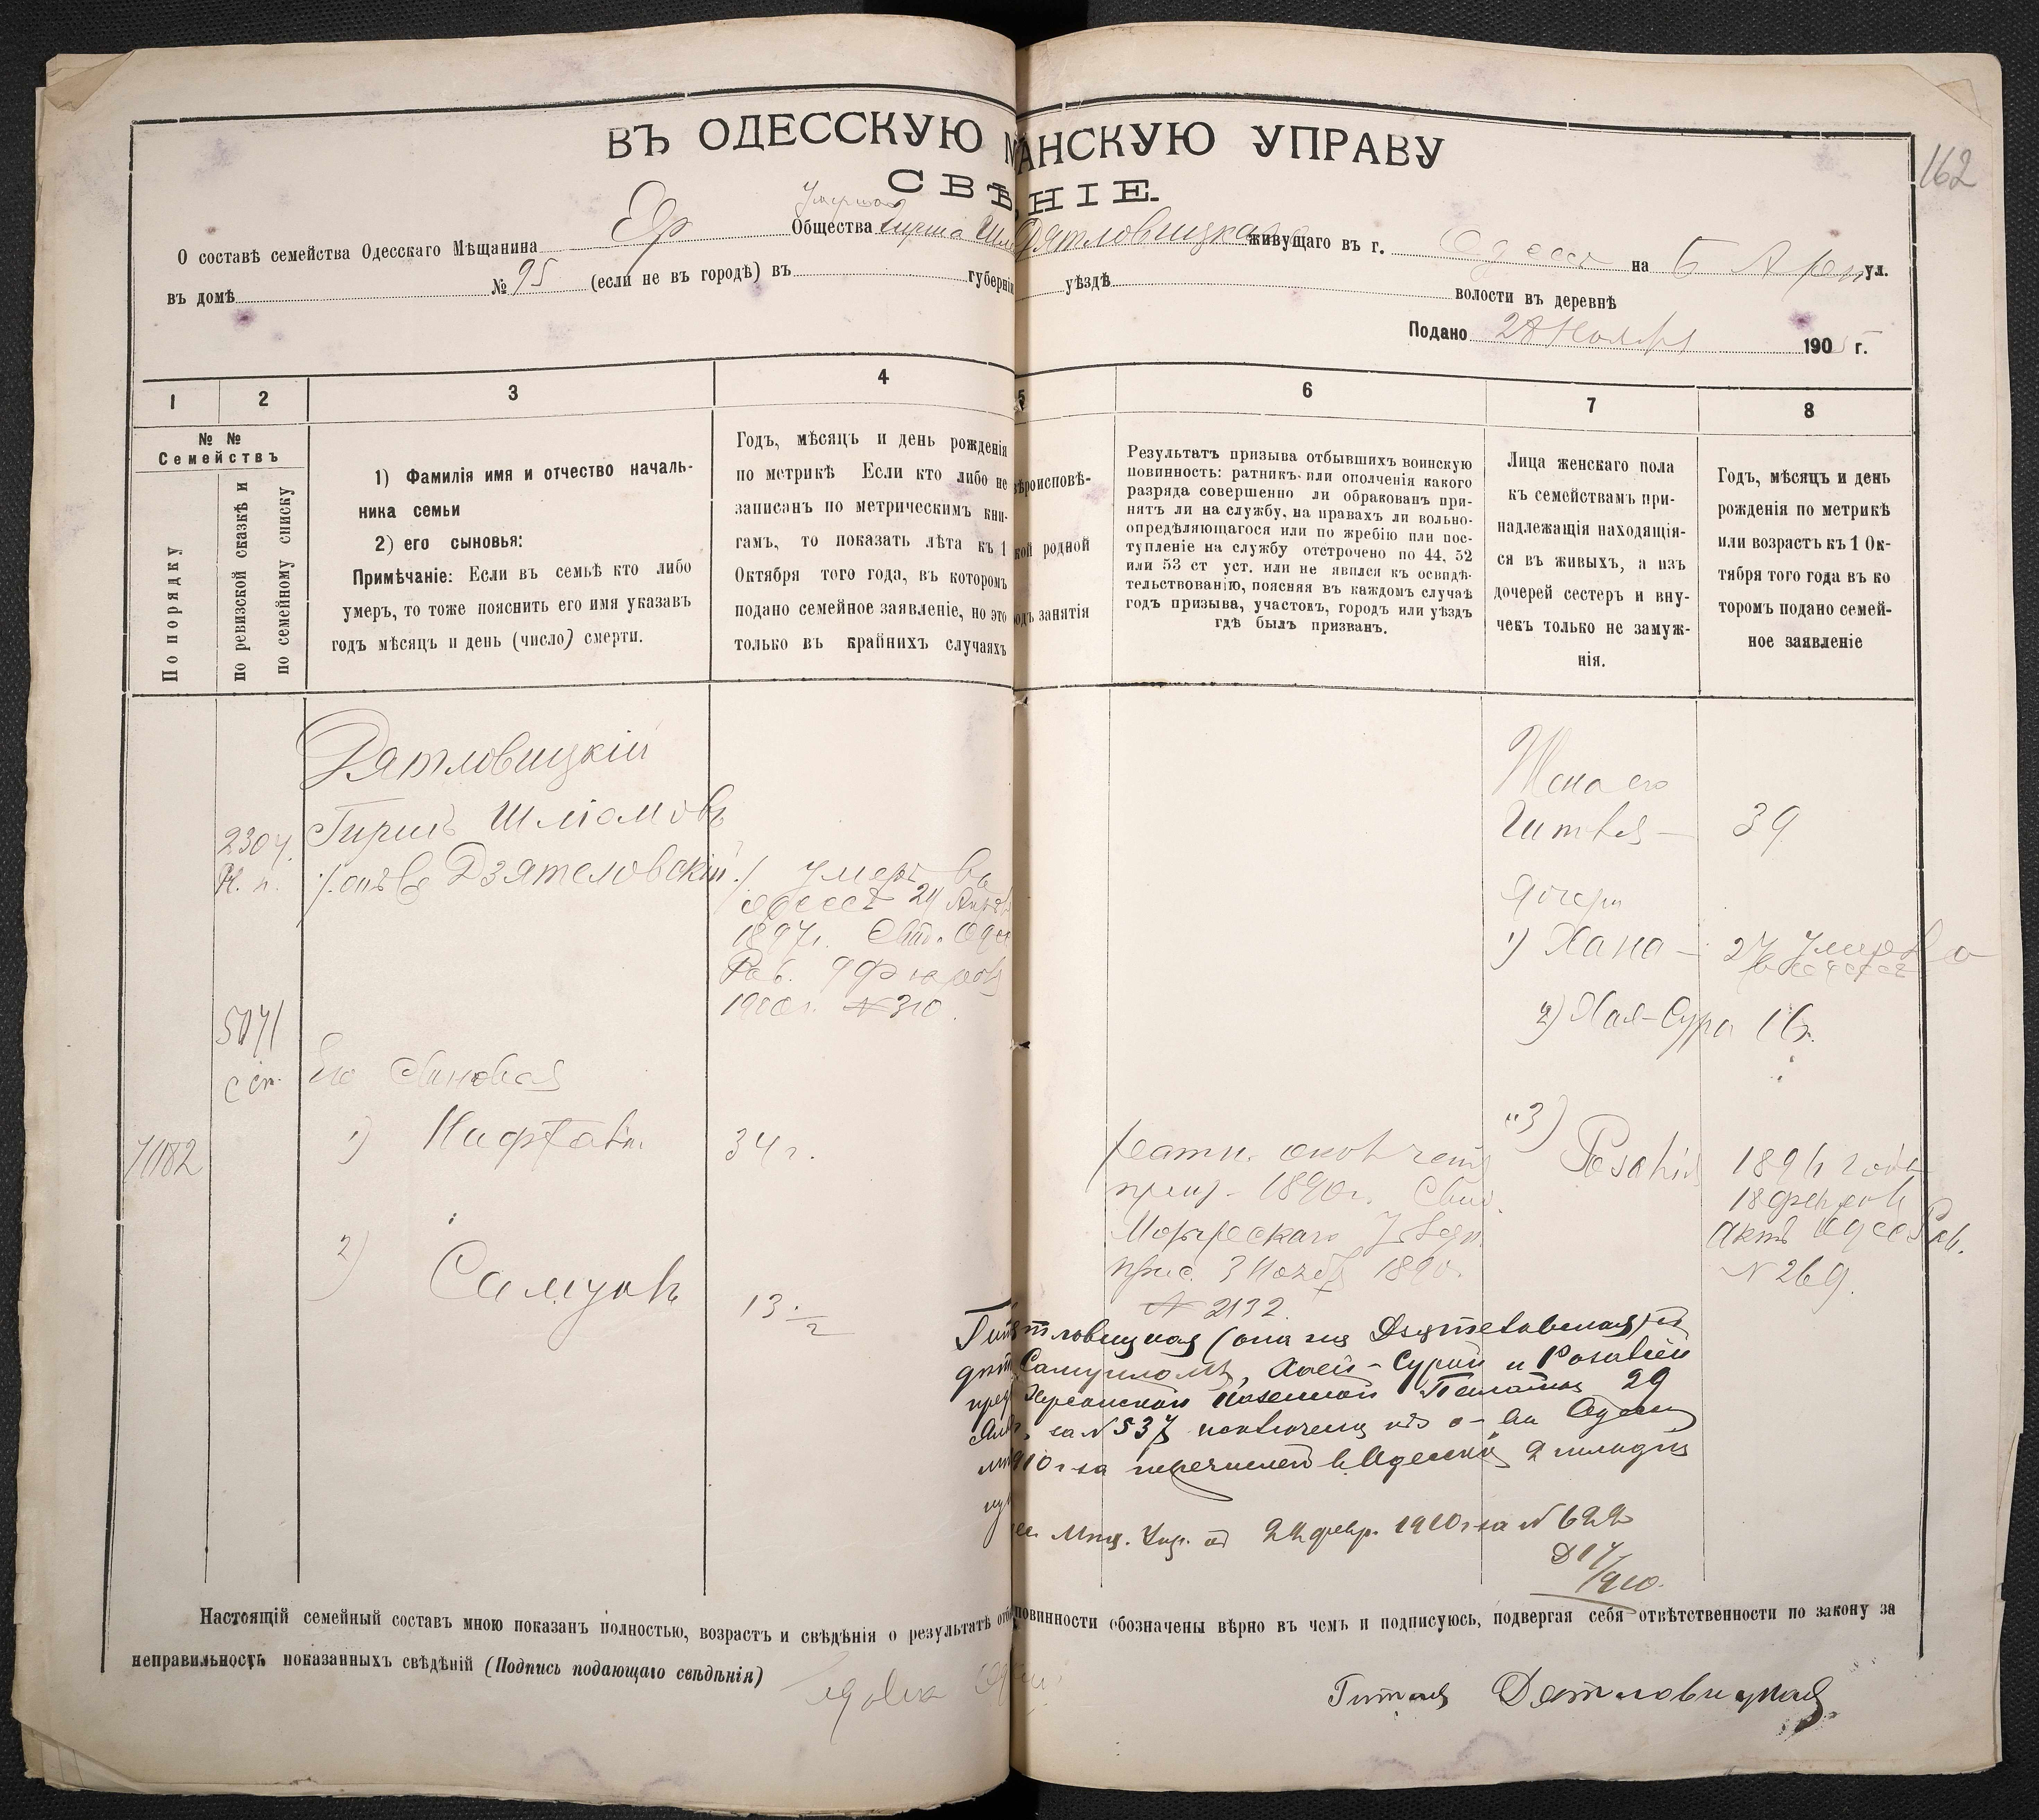 ВЪ ОДЕССКУЮ М АНСКУЮ УПРАВУ
162
СВѢ НІЕ.
О составѣ семейства Одесскаго Мѣщанина Ер Общества Гирша Шл Дятловицкаго живущаго въ г. Одессѣ на Б Арн ул.
въ домѣ № 95 (если не въ городѣ) въ губерніи уѣздѣ волости въ деревнѣ
Подано 28 Ноября 190 г.
1 2 3 4 5 6 7 8
№ №
Семействъ
По порядку
по ревизской сказкѣ и
по семейному списку
1) Фамилія имя и отчество началь-
ника семьи
2) его сыновья:
Примѣчаніе: Если въ семьѣ кто либо
умеръ, то тоже пояснить его имя указавъ
годъ мѣсяцъ и день (число) смерти.
Годъ, мѣсяцъ и день рожденія
по метрикѣ Если кто либо не
записанъ по метрическимъ кни-
гамъ, то показать лѣта къ 1
Октября того года, въ которомъ
подано семейное заявленіе, но это
только въ крайнихъ случаяхъ
ѣроисповѣ-
кой родной
одъ занятія
Результатъ призыва отбывшихъ воинскую
повинность: ратникъ или ополченія какого
разряда совершенно ли обракованъ при-
нятъ ли на службу, на правахъ ли вольно-
опредѣляющагося или по жребію или пос-
тупленіе на службу отстрочено по 44, 52
или 53 ст уст. или не явился къ освидѣ-
тельствованію, поясняя въ каждомъ случаѣ
годъ призыва, участокъ, городъ или уѣздъ
гдѣ былъ призванъ.
Лица женскаго пола
къ семействамъ при-
надлежащія находящія-
ся въ живыхъ, а изъ
дочерей сестеръ и вну-
чекъ только не замуж-
нія.
Годъ, мѣсяцъ и день
рожденія по метрикѣ
или возрастъ къ 1 Ок-
тября того года въ ко
торомъ подано семей-
ное заявленіе
Дятловицкій
Гиршъ Шліомовъ
онъ же Дзятеловскій
2304
Н. п.
умеръ въ
Одессѣ 24 Апрѣл
1897г. Свид. Одес
Рав. 9 Февраля
1900г. №310.
Жена его
Гитля — 39
Дочери
1) Хана — 27 Умерла
въ Одессѣ
2) Хая-Сура 16г.
5071
с сп.
Его Сыновья
1) Нафтали 34 г.
ратн. ополчен
приз. 1890г. Свид.
Мозырскаго Уѣздн.
прис. 3 Нояб 1890г.
№ 2132
3) Розалія 1896 года
18 февраля
актъ Одес Рав.
№ 269.
7082
2) Самуилъ 13 1/2
тловицкая (она же Дзятеловская) съ
дѣт Самуиломъ, Хаей-Сурой и Розаліей
Херсонской Казенной Палатою 29
за №537 исключены изъ о-ва Одесск
910 г за перечислен въ Одесскіе 2 гильдіи
Мѣщ. Упр. от 22 февр. 1910г за №622
910.
Настоящій семейный составъ мною показанъ полностью, возрастъ и свѣдѣнія о результатѣ отб повинности обозначены вѣрно въ чемъ и подписуюсь, подвергая себя отвѣтственности по закону за
неправильность показанныхъ свѣдѣній (Подпись подающаго свѣдѣнія)
Гитля Дятловицкая